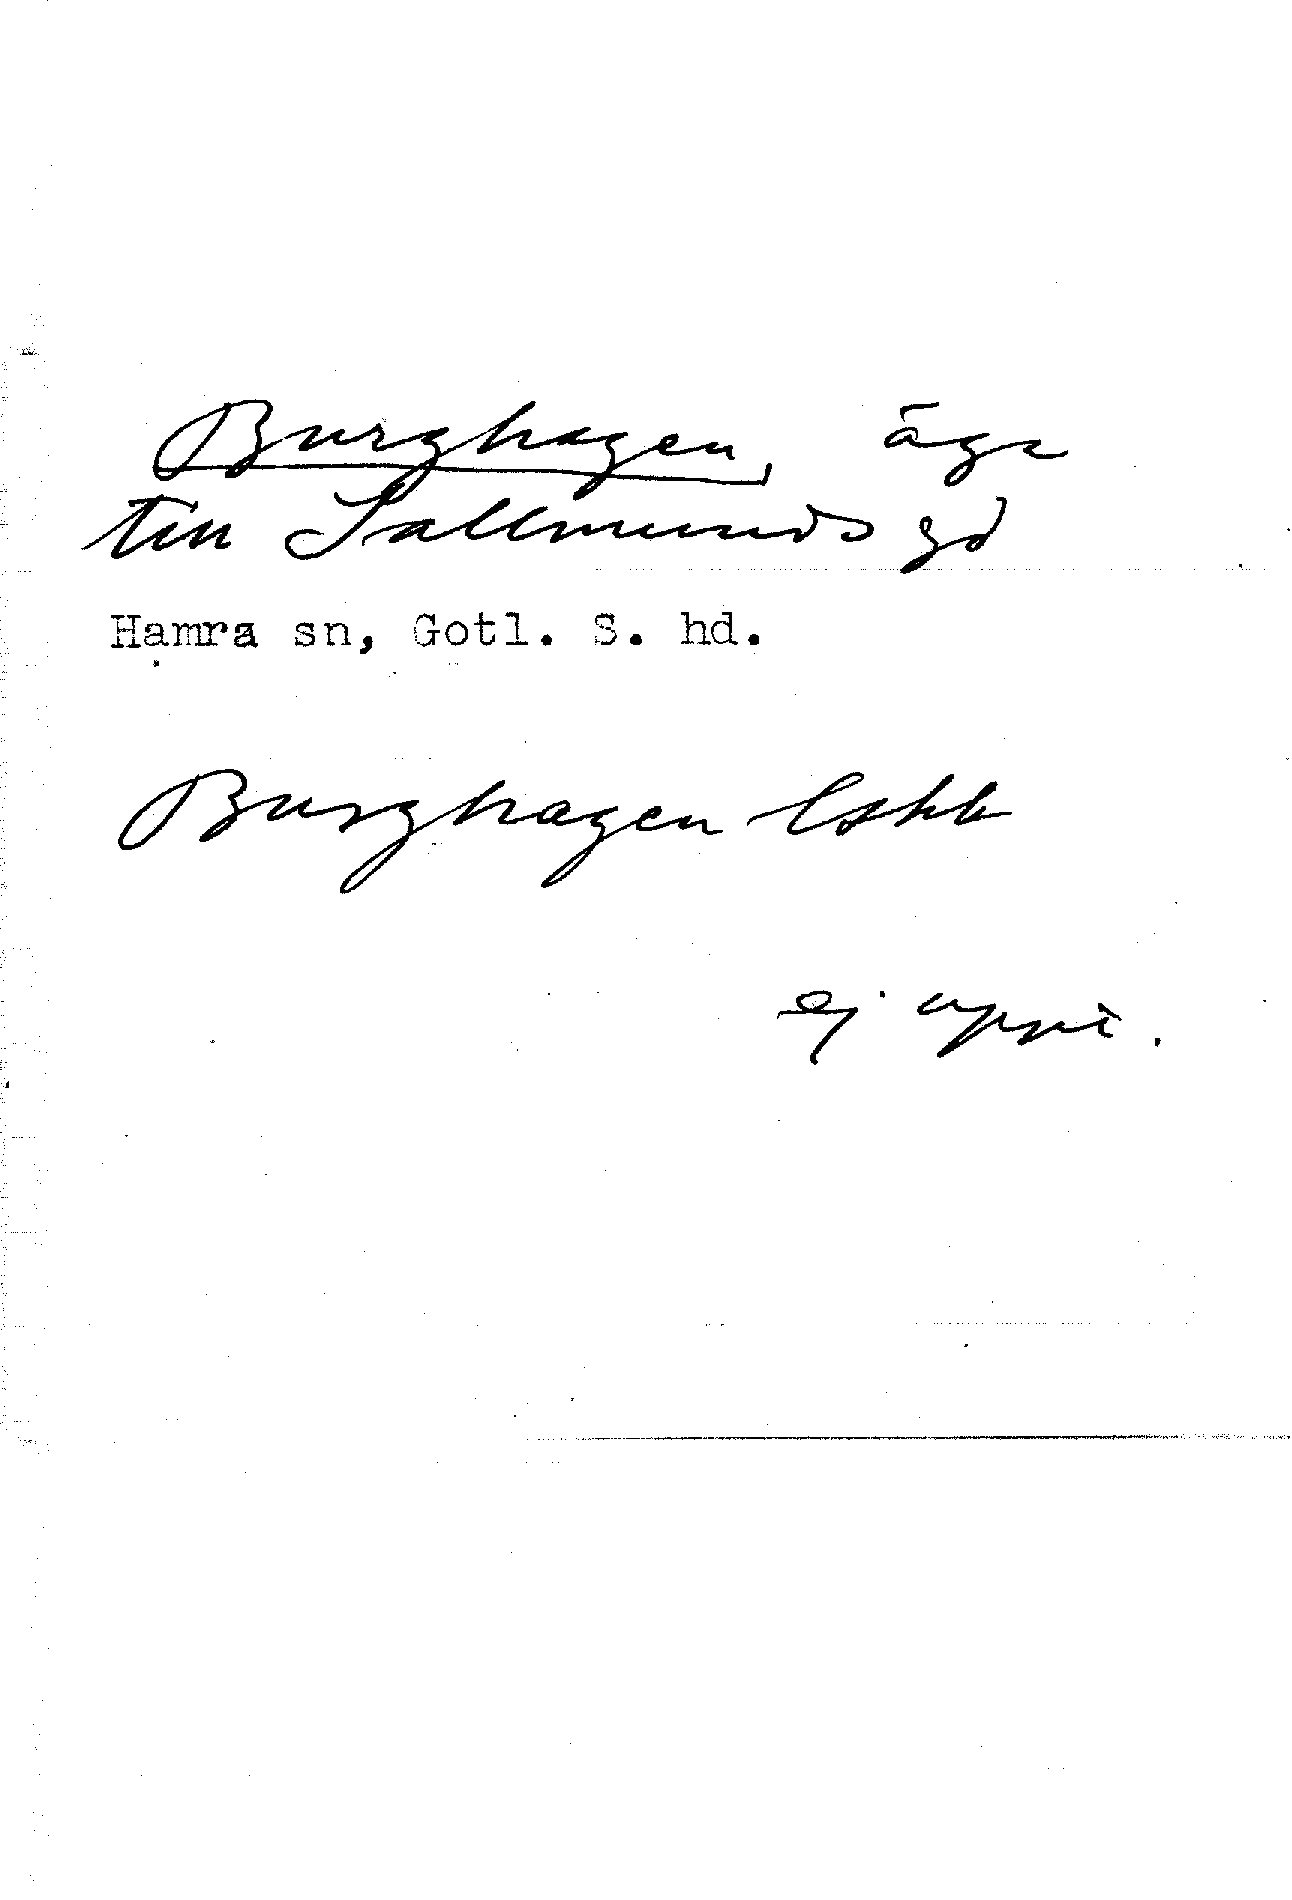 Burghagen, äga
till Sallmunds gd
Hamra sn, Gotl. S. hd.
Burghagen
ej uppt.